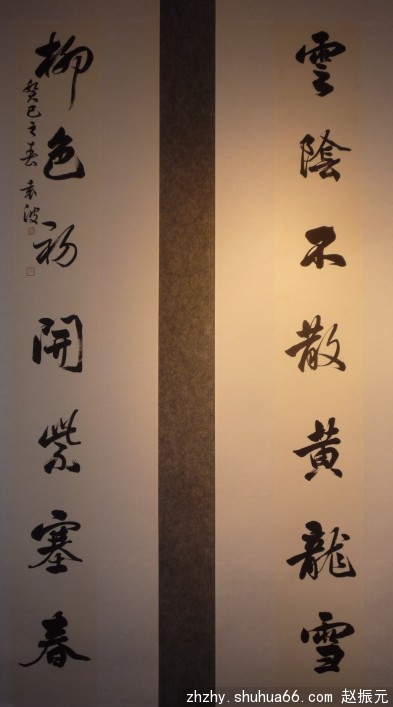 雲陰不散黄龍雪
柳色初開紫塞春
癸巳之春 袁波
zhzhy.shuhua66.com 赵振元